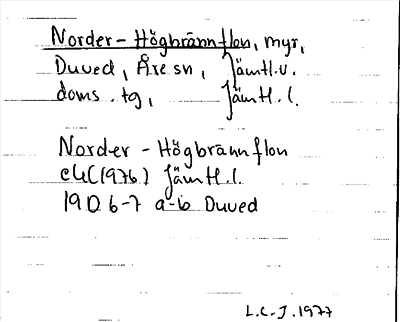 Norder-Högbrännflon, myr,
Duved, Åre sn, Jämtl.v.
doms.tg, Jämtl.l.
Norder-Högbrännflon
ek(1976) Jämtl.l.
19D 6-7 a-b Duved
L.C-J.1977